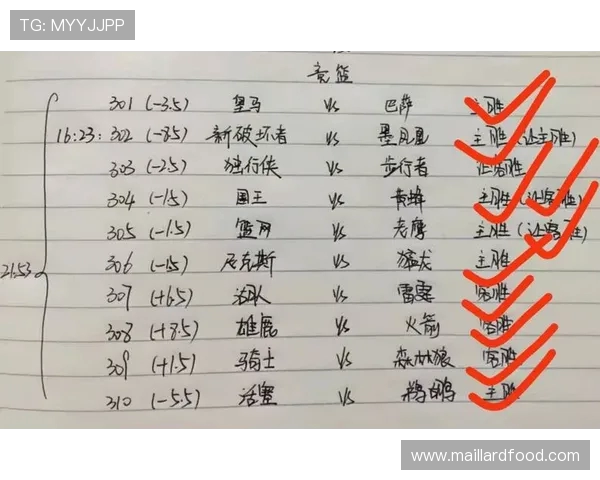 TG: MYYJJPP
竞篮
301 (-3.5) 皇马 vs 巴萨 主胜
16:23: 302 (-8.5) 新破坏者 vs 墨 主胜 (让主胜)
303 (-2.5) 独行侠 vs 步行者 让客胜
304 (-1.5) 国王 vs 黄蜂 主胜 (让客胜)
305 (-1.5) 篮网 vs 老鹰 主胜 (让客胜)
306 (-1.5) 尼克斯 vs 猛龙 主胜
21:53
307 (+6.5) vs 雷霆 客胜
308 (+8.5) 雄鹿 vs 火箭 客胜
309 (+1.5) 骑士 vs 森林狼 客胜
310 (-5.5) 活塞 vs 鹈鹕 主胜
www.maillardfood.com